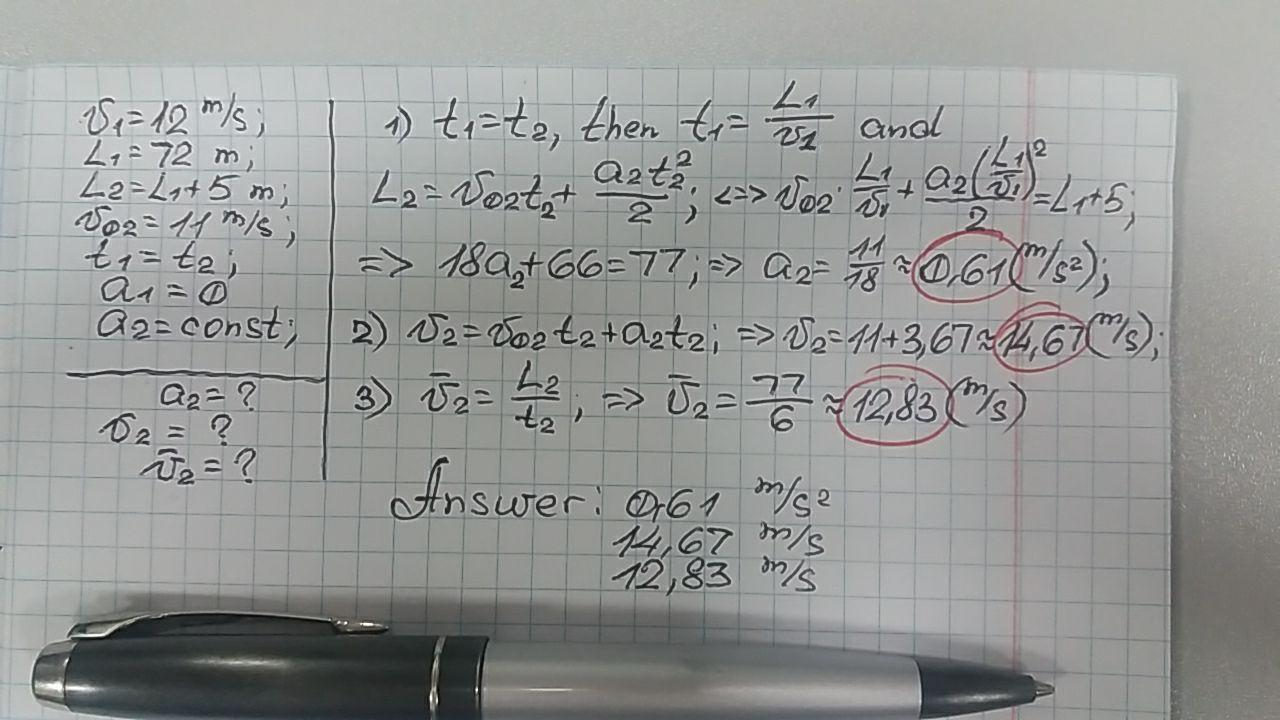 v₁ = 12 m/s;
L₁ = 72 m;
L₂ = L₁ + 5 m;
v₀₂ = 11 m/s;
t₁ = t₂;
a₁ = 0
a₂ = const;
a₂ = ?
v₂ = ?
v̄₂ = ?
1) t₁ = t₂, then t₁ = L₁/v₁ and
L₂ = v₀₂t₂ + a₂t₂²/2; <=> v₀₂ · L₁/v₁ + a₂(L₁/v₁)²/2 = L₁ + 5;
=> 18a₂ + 66 = 77; => a₂ = 11/18 ≈ 0,61 (m/s²);
2) v₂ = v₀₂t₂ + a₂t₂; => v₂ = 11 + 3,67 ≈ 14,67 (m/s);
3) v̄₂ = L₂/t₂; => v̄₂ = 77/6 ≈ 12,83 (m/s)
Answer: 0,61 m/s²
14,67 m/s
12,83 m/s